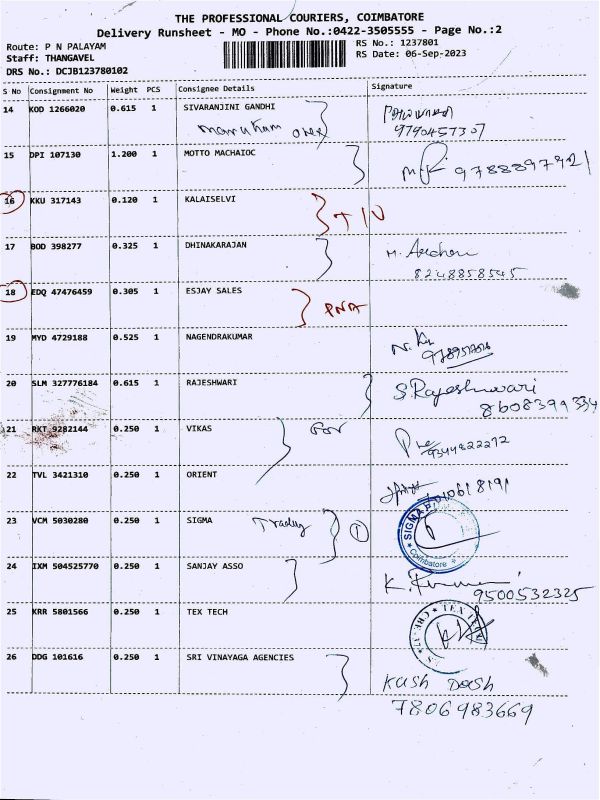 THE PROFESSIONAL COURIERS, COIMBATORE
Delivery Runsheet - MO - Phone No.:0422-3505555 - Page No.:2
Route: P N PALAYAM
RS No.: 1237801
Staff: THANGAVEL
RS Date: 06-Sep-2023
DRS No.: DCJB123780102
S No Consignment No Weight PCS Consignee Details Signature
14 KOD 1266020 0.615 1 SIVARANJINI GANDHI
9790457307
15 DPI 107130 1.200 1 MOTTO MACHAIOC
9788897921
16 KKU 317143 0.120 1 KALAISELVI
17 BOD 398277 0.325 1 DHINAKARAJAN
8248858545
18 EDQ 47476459 0.305 1 ESJAY SALES
PNA
19 MYD 4729188 0.525 1 NAGENDRAKUMAR
20 SLM 327776184 0.615 1 RAJESHWARI S.Rajeshwari
8608399334
21 RKT 9282144 0.250 1 VIKAS
9344822272
22 TVL 3421310 0.250 1 ORIENT
23 VCM 5030280 0.250 1 SIGMA Trading 1
SIGMA
Coimbatore
24 IXM 504525770 0.250 1 SANJAY ASSO
9500532325
25 KRR 5801566 0.250 1 TEX TECH
26 DDG 101616 0.250 1 SRI VINAYAGA AGENCIES
Kush Dash
7806983669